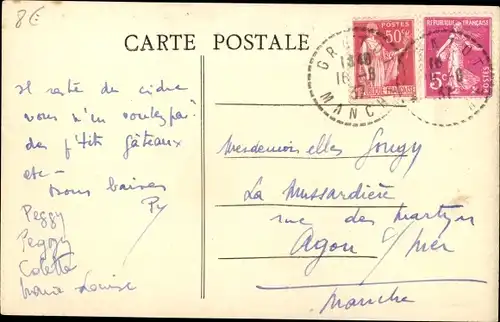 8€
CARTE POSTALE
Il reste du cidre
vous n'en voulez pas
des p'tits gâteaux
etc -
bons baisers
Py
Peggy
Peggy
Colette
Marie Louise
POSTES
50c
RÉPUBLIQUE FRANÇAISE
RÉPUBLIQUE FRANÇAISE
5c
POSTES
1840
16-8
MANCHE
Mesdemoiselles Gougy
La Mussardière
rue des martyrs
Agon s/ Mer
Manche